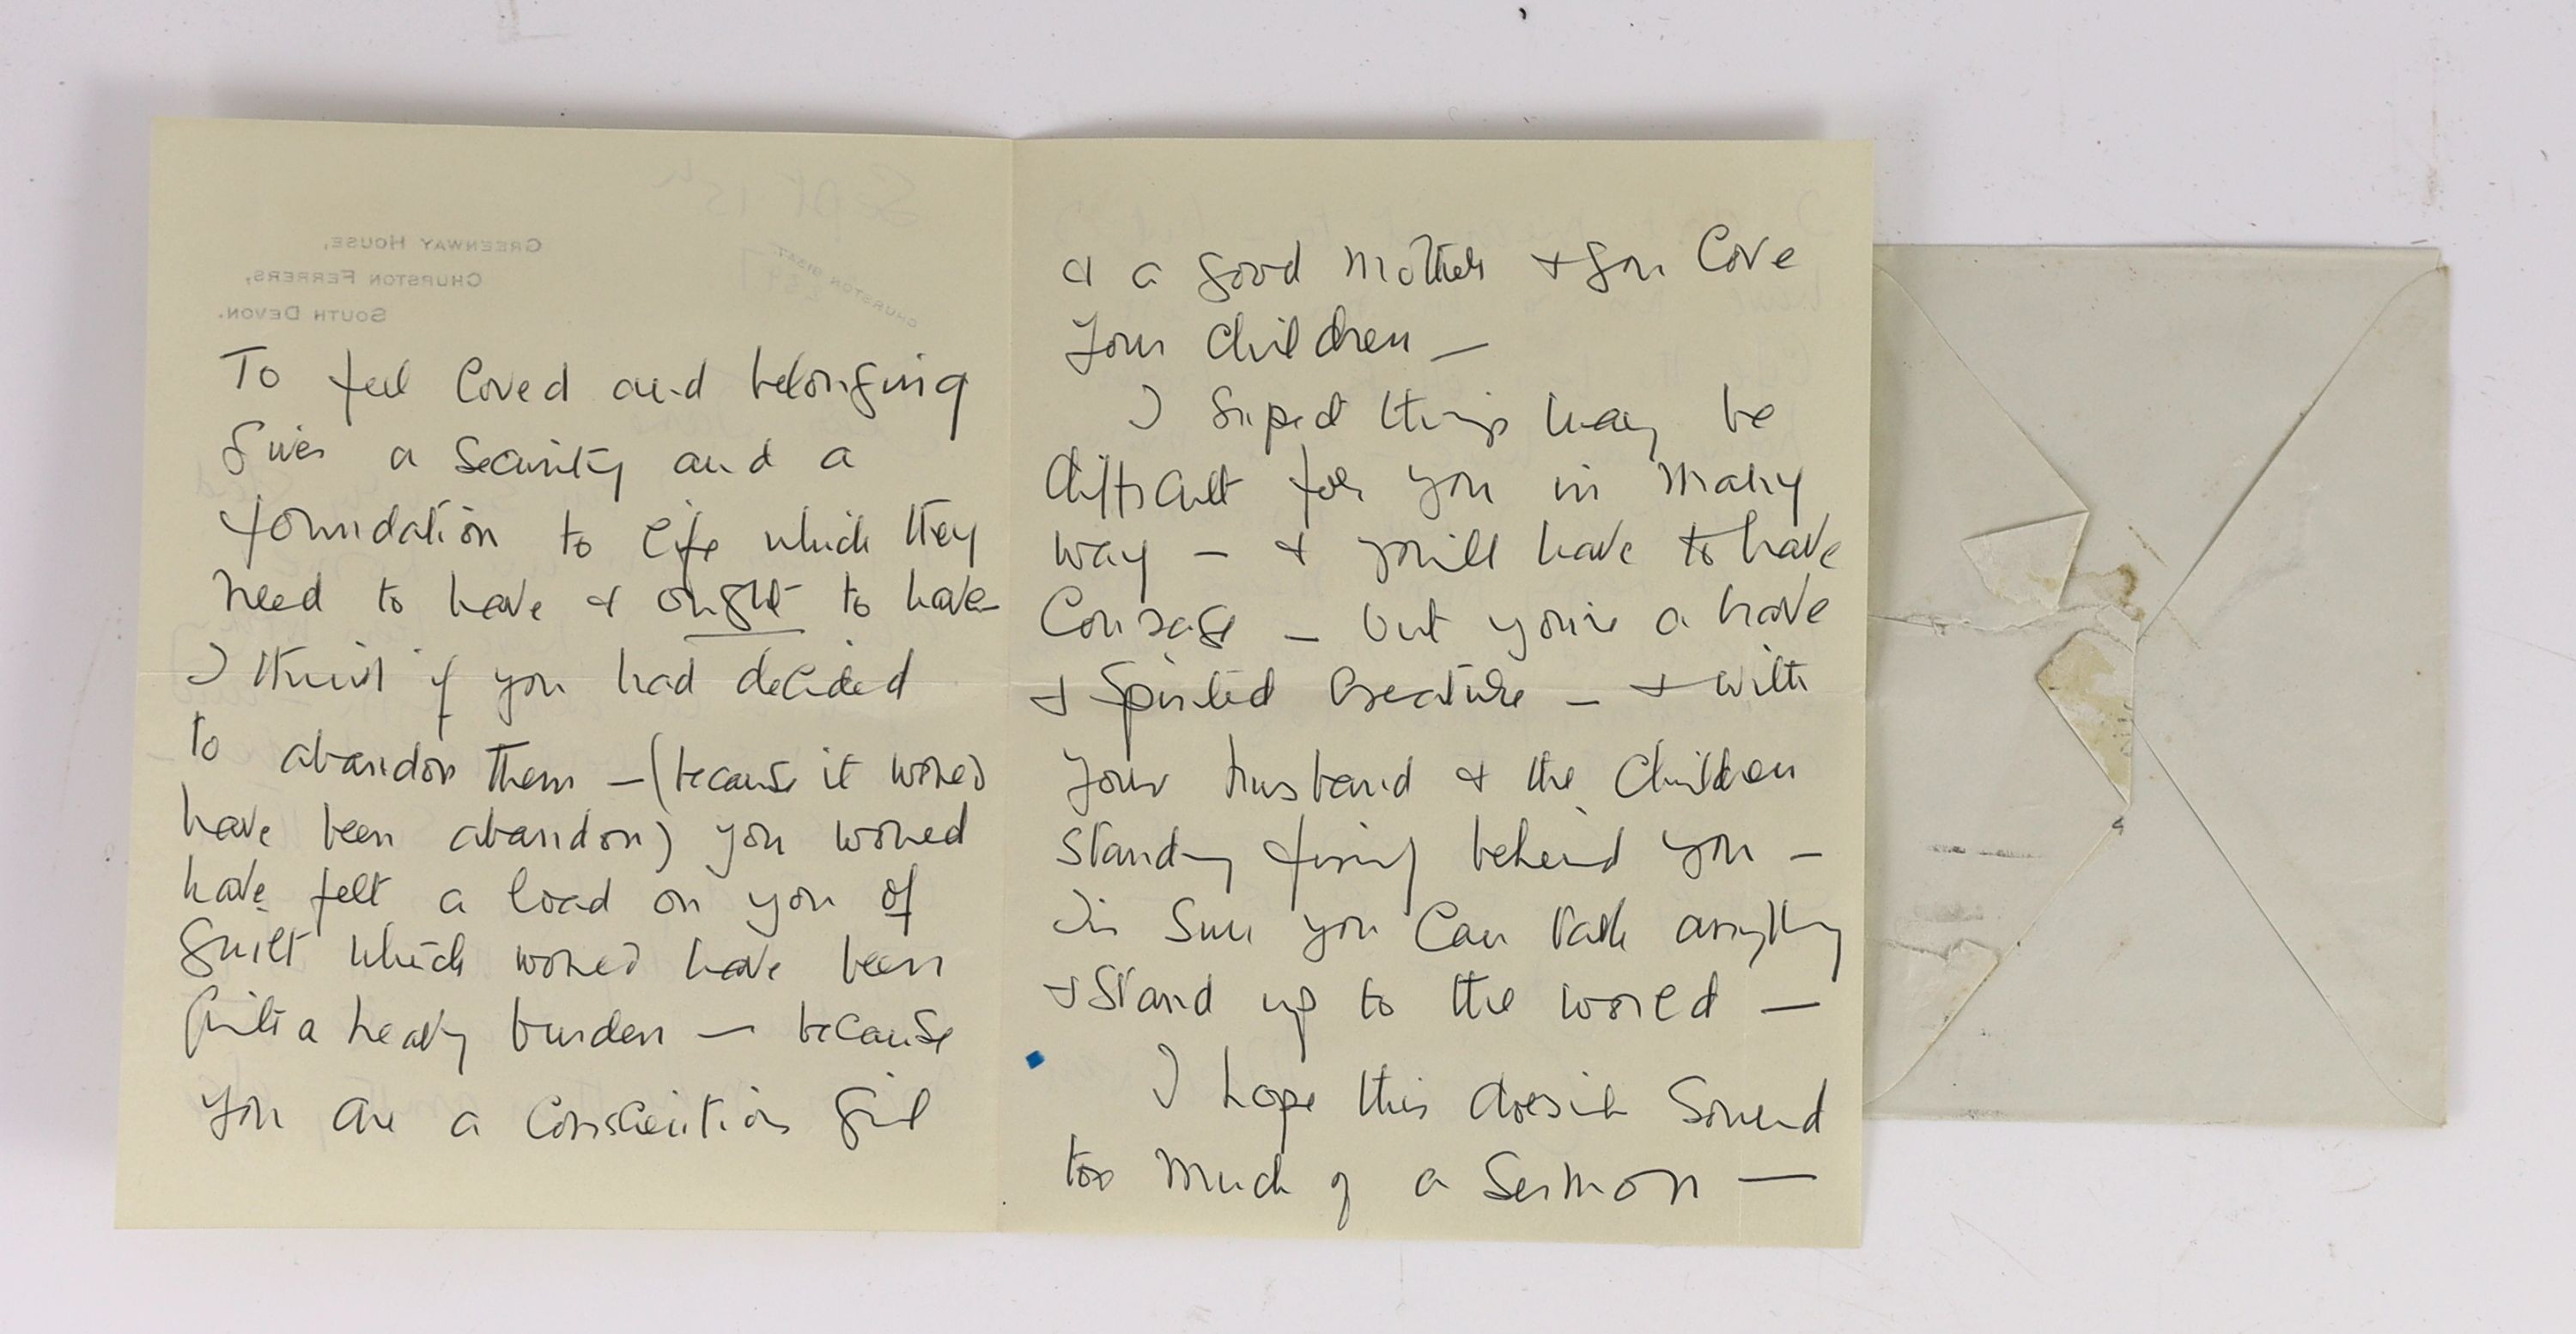 GREENWAY HOUSE,
CHURSTON FERRERS,
SOUTH DEVON.
Sept 15th
To feel loved and belonging
gives a security and a
foundation to life which they
need to have & ought to have
I think if you had decided
to abandon them – (because it would
have been abandon) you would
have felt a load on you of
guilt which would have been
quite a heavy burden – because
you are a conscientious girl
& a good mother & you love
your children –
I expect things may be
difficult for you in many
way – & you'll have to have
Courage – but you're a brave
& spirited creature – & with
your husband & the children
standing firmly behind you –
I'm sure you can tackle anything
& stand up to the world –
I hope this doesn't sound
too much of a sermon –